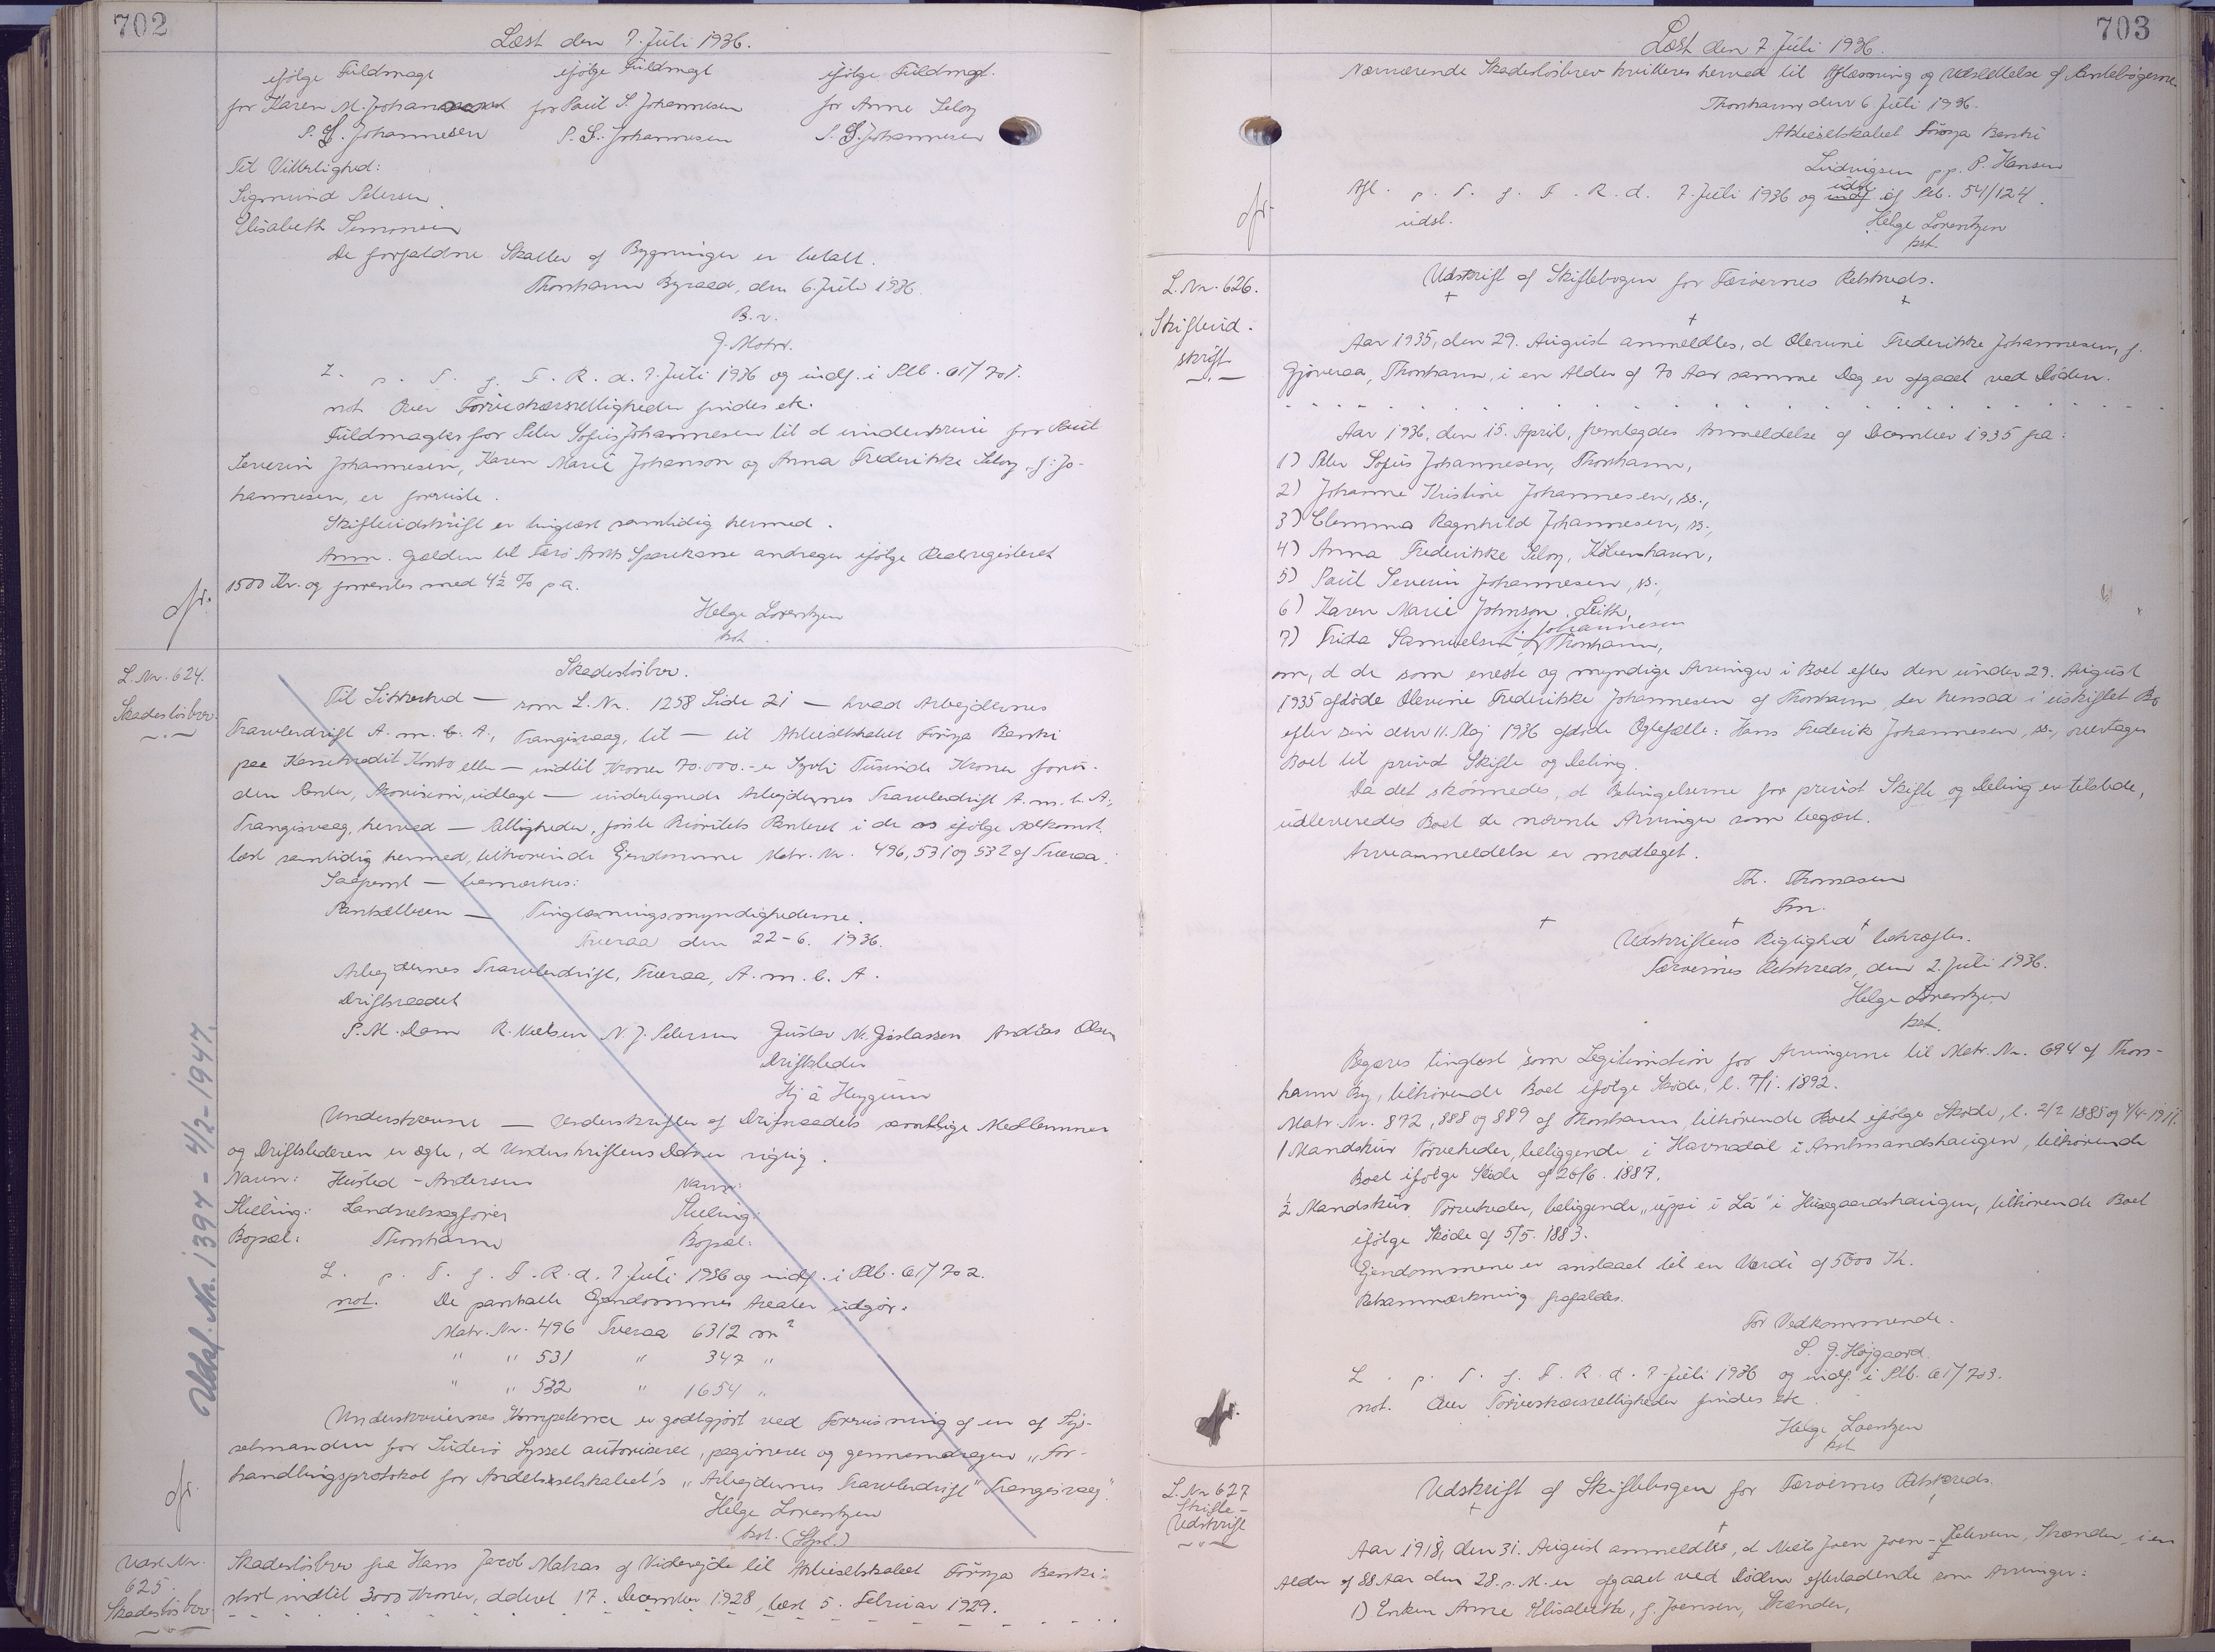 702
Læst den 7. Juli 1936.
ifölge Fuldmagt ifölge Fuldmagt ifölge Fuldmagt.
for Karen M. for Paul S. Johannesen for Anna Seloy
P. S. Johannesen P. S. Johannesen P. S. Johannesen
Til Vitterlighed:
Sigmund Petersen
Elisabeth Simonsen
De forfaldne Skatter af Bygninger er betalt.
Thorshavn Byraad, den 6. Juli 1936.
B. v.
L. p. T. f. F. R. d. 7. Juli 1936 og indf. i Ptb. 61/701.
not. Over Tørveskærsrettigheder findes etc.
Fuldmagter for Peter Sofus Johannesen til at underskrive for Paul
Severin Johannesen, Karen Marie Johanson og Anna Frederikke Seloy, f. Jo-
hannesen, er forevist.
Skifteudskrift er tinglæst samtidig hermed.
Anm. Gælden til Færø Amts Sparekasse andrager ifölge Realregisteret
1500 Kr. og forrentes med 4½ % p a.
Helge Lorentzen
kst.
L. Nr. 624.
Skadeslösbrev.
Skadeslösbrev.
Til Sikkerhed — som L. Nr. 1258 Side 21 — hvad Arbejdernes
Trawlerdrift A. m. b. A., Trangisvaag, til — til Aktieselskabet Föroya Banki
paa Kassekredit Konto eller — indtil Kroner 70.000.- er Syvti Tusinde Kroner foru-
den Renter, Provision, udlagt — undertegnede Arbejdernes Trawlerdrift A. m. b. A.,
Trangisvaag, herved — Rettigheder, förste Prioritets Panteret i de os ifölge Adkomst,
læst samtidig hermed, tilhörende Ejendomme Matr. Nr. 496, 531 og 532 af Tveraa.
Saafremt — bemærkes:
Panthaveren — Tinglæsningsmyndighederne.
Tveraa den 22-6. 1936.
Arbejdernes Trawlerdrift, Tveraa, A. m. b. A.
Driftsraadet
P. M. Dam R. Nielsen N. J. Petersen Gustav M. Gislason Andias Olsen
Driftsleder
Hj á Heygum
Underskrevne — Underskrifter af Driftsraadets samtlige Medlemmer
og Driftslederen er ægte, at Underskriftens Dato er rigtig.
Navn: Husted - Andersen Navn:
Stilling: Landsretssagförer Stilling:
Bopæl: Thorshavn Bopæl:
L. p. T. f. F. R. d. 7. Juli 1936 og indf. i Ptb. 61/702.
not. De pantsatte Ejendommes Arealer udgör:
Matr. Nr. 496 Tveraa 6312 m²
" " 531 " 347 "
" " 532 " 1654 "
Underskrivernes Kompetence er godtgjort ved Forevisning af en af Sys-
selmanden for Suderö Syssel autoriseret, pagineret og gennemdragen „For-
handlingsprotokol for Andelsselskabet's „Arbejdernes Trawlerdrift" Trangisvaag".
Helge Lorentzen
kst.
Udsl. Nr. 1394 - 4/2 - 1947.
Læst Nr. 625. Skadeslösbrev.
Skadeslösbrev fra Hans Jacob Matras af Viderejde til Aktieselskabet Föroya Banki
stort indtil 3000 Kroner, dateret 17. December 1928, læst 5. Februar 1929.
703
Læst den 7. Juli 1936.
Nærværende Skadeslösbrev kvitteres herved til Aflæsning og Udslettelse af Pantebögerne.
Thorshavn den 6. Juli 1936.
Aktieselskabet Föroya Banki
Ludvigsen pp. P. Hansen
Afl. p. T. f. F. R. d. 7. Juli 1936 og udsl. af Ptb. 54/124.
udsl.
Helge Lorentzen
kst.
L. Nr. 626.
Skifteud-
skrift
Udskrift af Skiftebogen for Færöernes Retskreds.
Aar 1935, den 29. August anmeldtes, at Olevine Frederikke Johannesen, f.
Gjöveraa, Thorshavn, i en Alder af 70 Aar samme Dag er afgaaet ved Döden.
Aar 1936, den 15. April, fremlagdes Anmeldelse af December 1935 fra:
1) Peter Sofus Johannesen, Thorshavn,
2) Johanne Kristine Johannesen, ss.,
3) Clemma Ragnhild Johannesen, ss.,
4) Anna Frederikke Seloy, København,
5) Paul Severin Johannesen, ss.,
6) Karen Marie Johnson, Leith,
7) Frida Samuelsen f. Johannesen Thorshavn,
om, at de som eneste og myndige Arvinger i Boet efter den under 29. August
1935 afdöde Olevine Frederikke Johannesen af Thorshavn, der hensad i uskiftet Bo
efter sin den 11. Maj 1936 afdöde Ægtefælle: Hans Frederik Johannesen, ss., overtager
Boet til privat Skifte og Deling.
Da det skönnedes, at Betingelserne for privat Skifte og Deling er tilstede,
udleveredes Boet de nævnte Arvinger som begært.
Arveanmeldelse er modtaget.
Th. Thomasen
Fm.
Udskriftens Rigtighed bekræftes.
Færöernes Retskreds, den 2. Juli 1936.
Helge Lorentzen
kst.
Begæres tinglæst som Legitimation for Arvingerne til Matr. Nr. 694 af Thors-
havn By, tilhörende Boet ifölge Sköde, l. 7/1. 1892.
Matr. Nr. 872, 888 og 889 af Thorshavn, tilhörende Boet ifölge Sköde, l. 2/2 1885 og 4/4-1911.
1 Mandskur Törveheder, beliggende i Havnadal i Amtmandshaugen, tilhörende
Boet ifölge Sköde af 26/6. 1887.
½ Mandskur Törveheder, beliggende „uppi i Lá" i Husagaardshaugen, tilhörende Boet
ifölge Sköde af 5/5. 1883.
Ejendommene er anslaaet til en Værdi af 5000 Kr.
Retsanmærkning frafaldes.
For Vedkommende.
S. J. Højgaard.
L. p. T. f. F. R. d. 7. Juli 1936 og indf. i Ptb. 61/703.
not. Over Törveskærsrettigheder findes etc.
Helge Lorentzen
kst.
L. Nr. 627
Skifte-
Udskrift
Udskrift af Skiftebogen for Færöernes Retskreds.
Aar 1918, den 31. August anmeldtes, at Niels Joen Joen-Petersen, Strænder, i en
Alder af 88 Aar den 28. s. M. er afgaaet ved Döden efterladende som Arvinger:
1) Enken Anne Elisabeth, f. Joensen, Strænder,